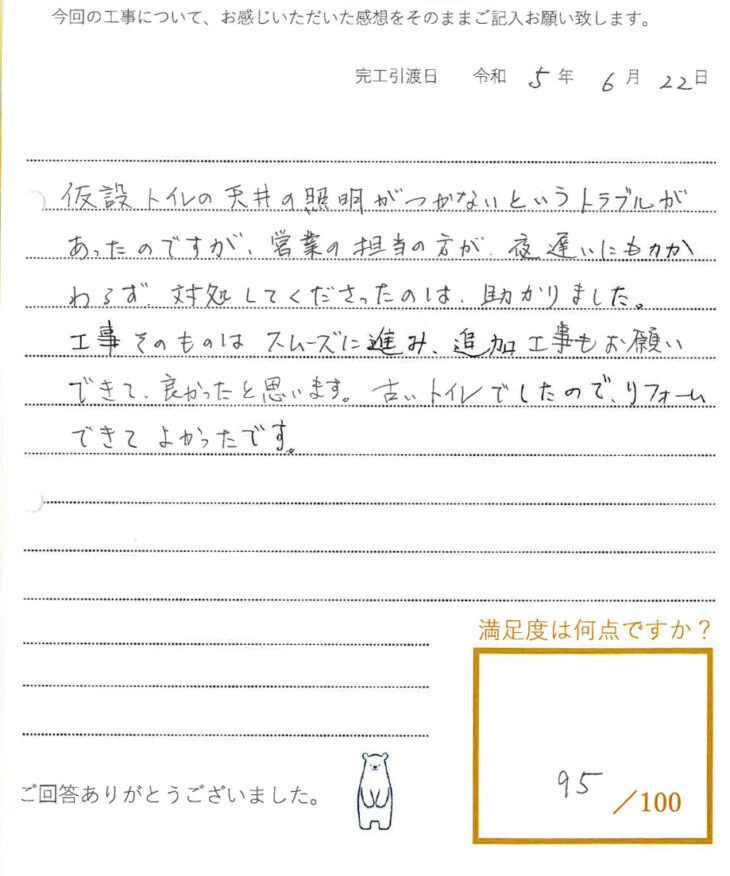 今回の工事について、お感じいただいた感想をそのままご記入お願い致します。
完工引渡日 令和 5 年 6 月 22 日
仮設トイレの天井の照明がつかないというトラブルが
あったのですが、営業の担当の方が、夜遅いにもかか
わらず、対処してくださったのは、助かりました。
工事そのものは スムーズに進み、追加工事もお願い
できて、良かったと思います。古いトイレでしたので、リフォーム
できて よかったです。
満足度は何点ですか?
95/100
ご回答ありがとうございました。